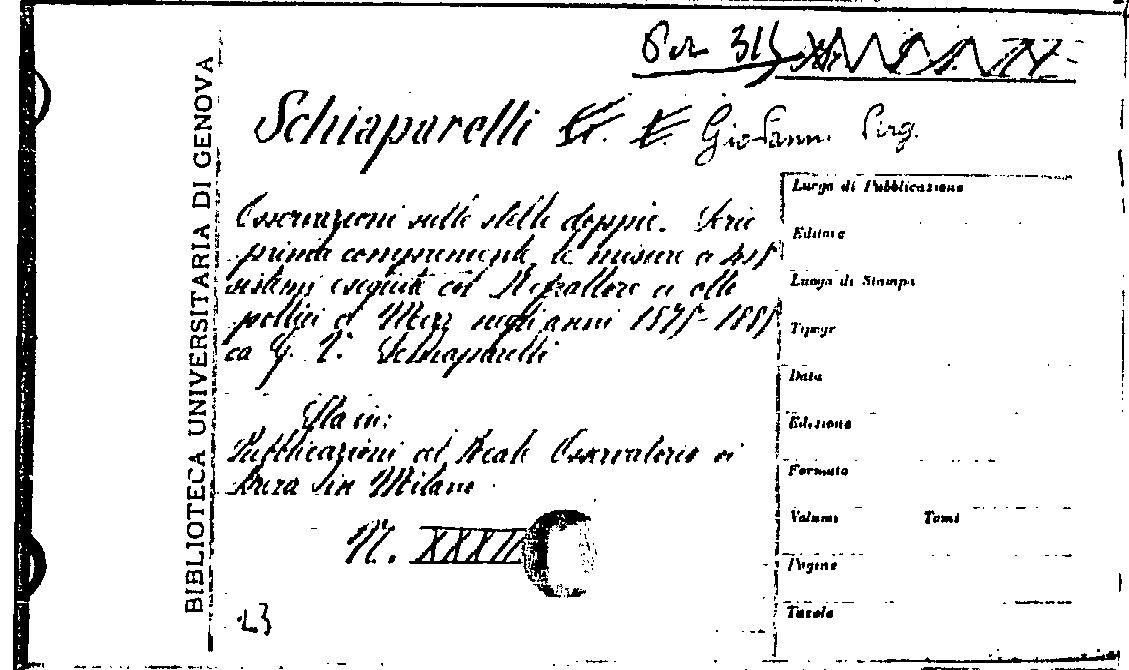 Per 315
Schiaparelli G. V. Giovanni Virg.
BIBLIOTECA UNIVERSITARIA DI GENOVA
Osservazioni sulle stelle doppie. Serie
prima comprendente le misure di
sistemi eseguite col Refrattore di otto
pollici di Merz negli anni 1875-1885
da G. V. Schiaparelli
Sta in:
Pubblicazioni del Reale Osservatorio di
Brera in Milano
N. XXXIII
23
Luogo di Pubblicazione
Editore
Luogo di Stampa
Tipogr
Data
Edizione
Formato
Volumi Tomi
Pagine
Tavole